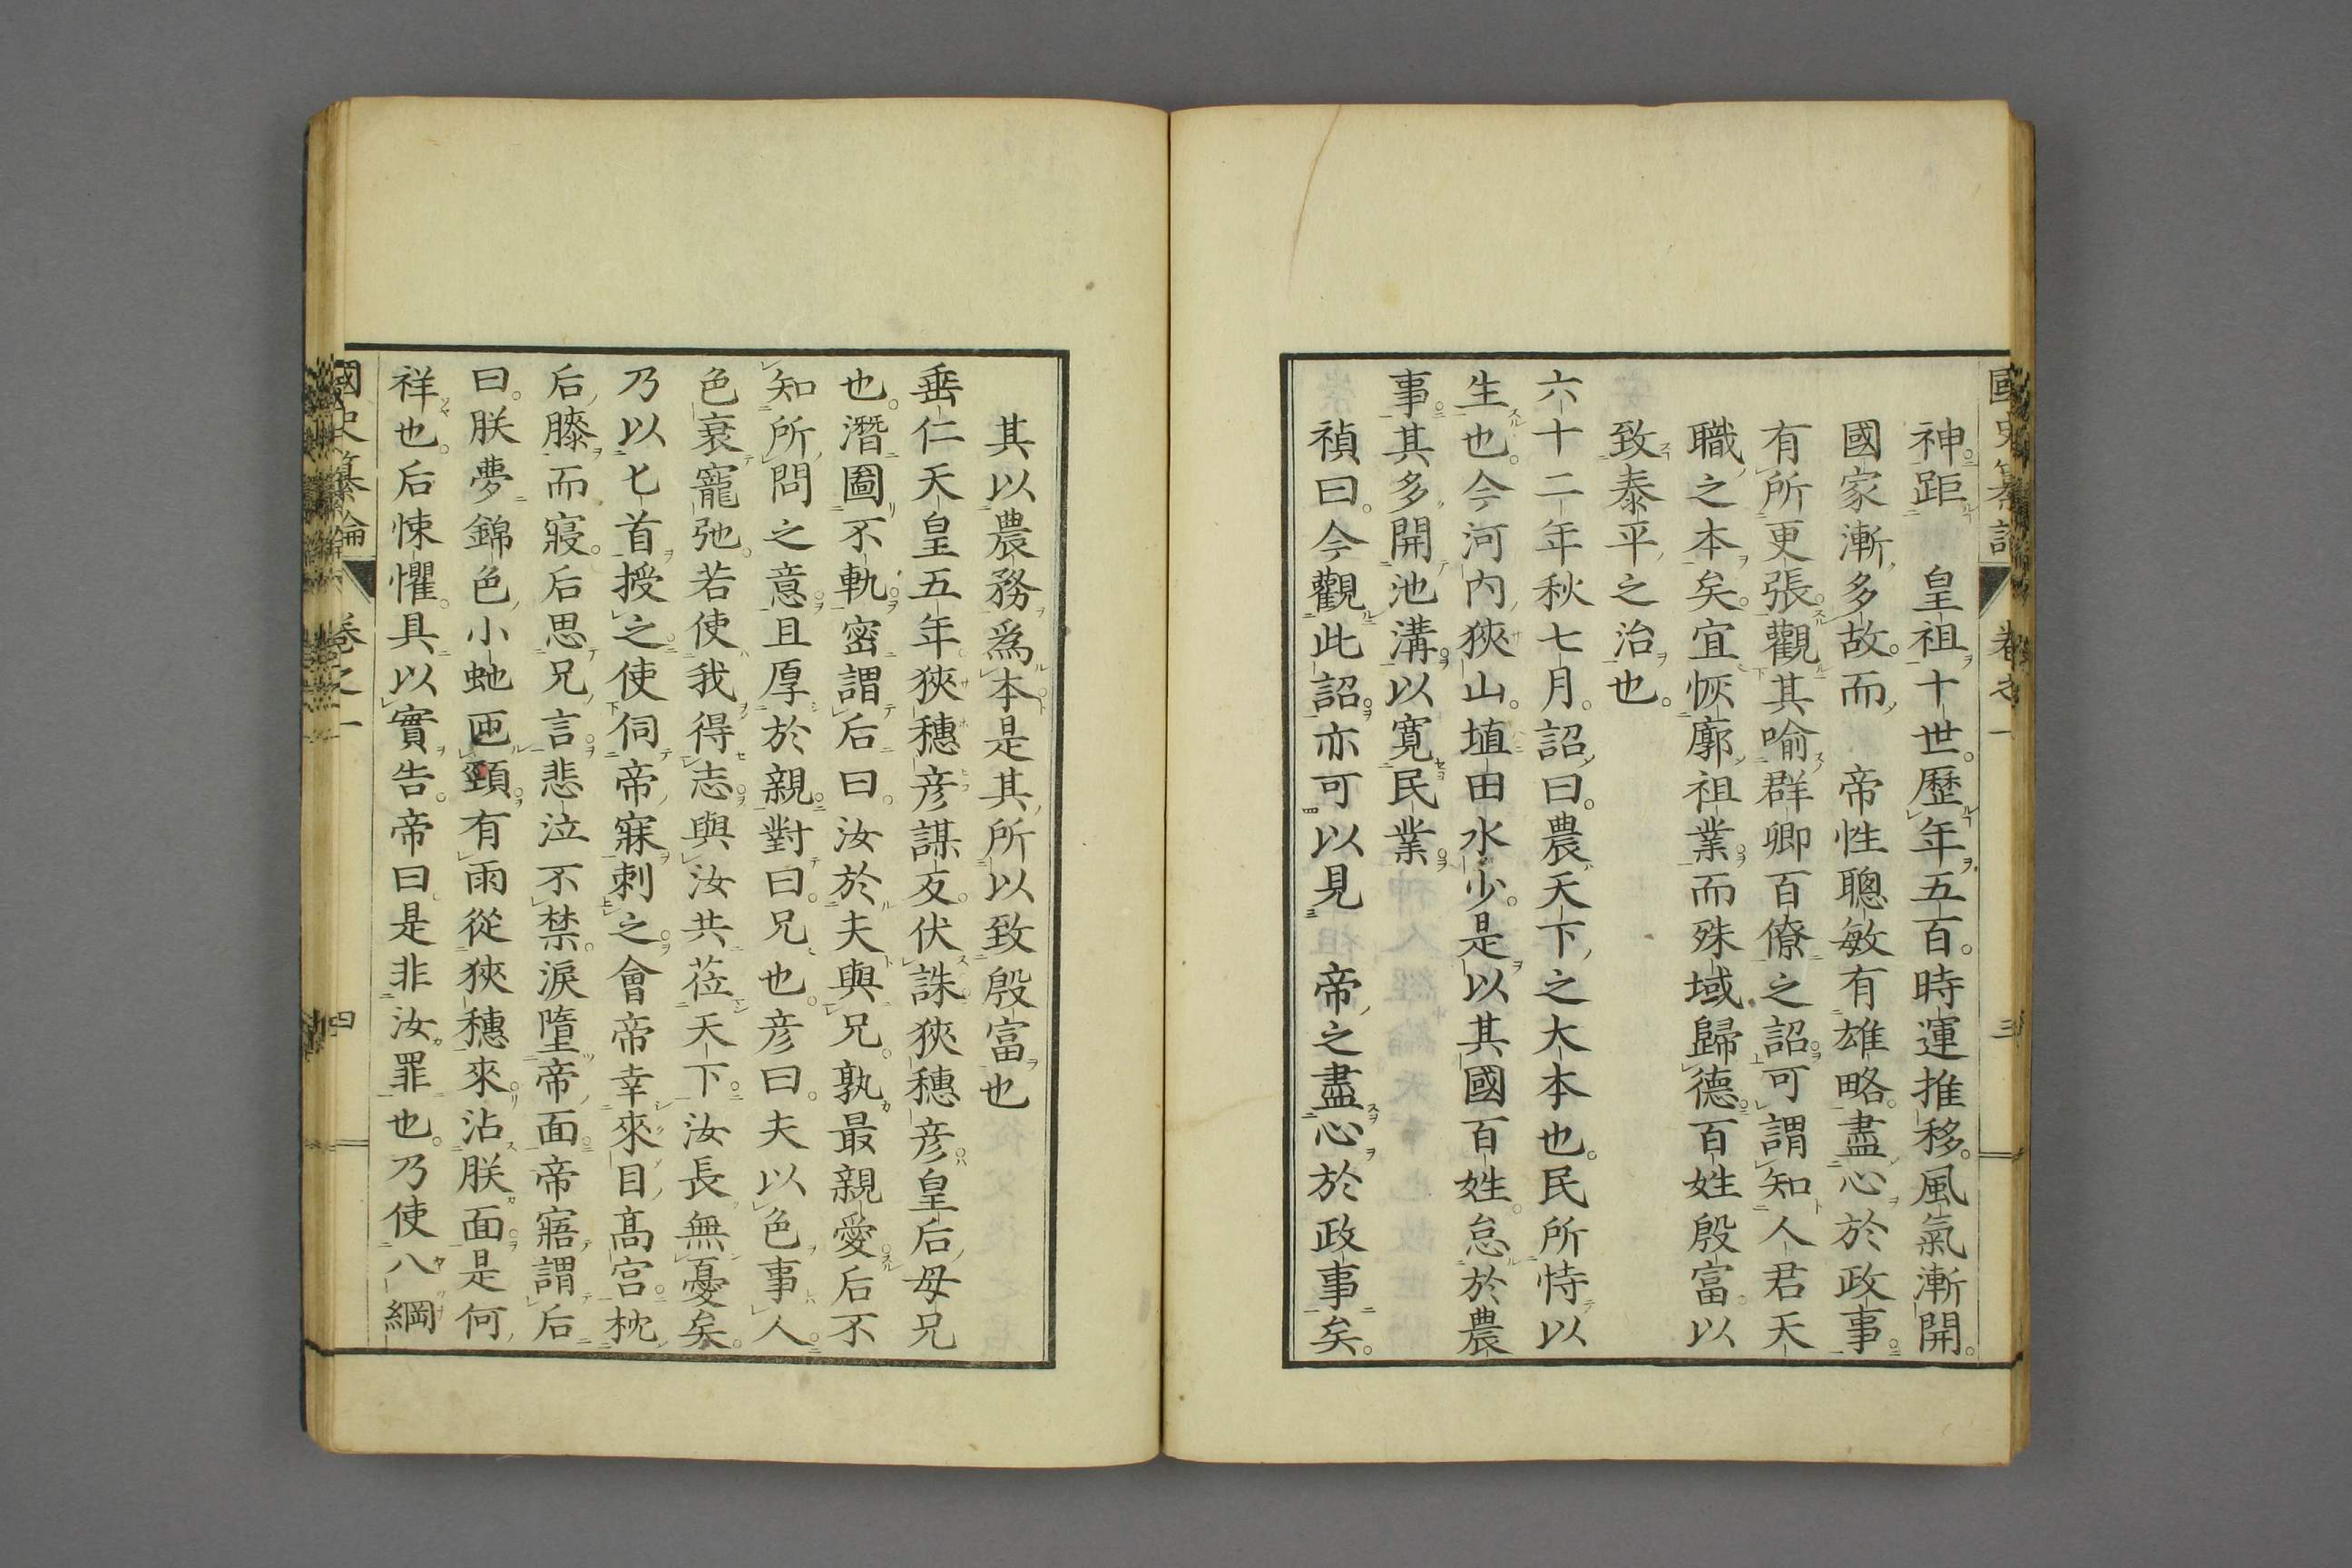 國史纂論 卷之一 三
神距 皇祖十世。歷年五百。時運推移。風氣漸開。
國家漸多故。而 帝性聰敏有雄略。盡心於政事。
有所更張。觀其喻群卿百僚之詔。可謂知人君天
職之本矣。宜恢廓祖業。而殊域歸德。百姓殷富。以
致泰平之治也。
六十二年秋七月。詔曰。農天下之大本也。民所恃以
生也。今河內狹山。埴田水少。是以其國百姓。怠於農
事。其多開池溝。以寬民業。
禎曰。今觀此詔。亦可以見 帝之盡心於政事矣。
其以農務爲本。是其所以致殷富也
垂仁天皇五年。狹穗彥謀反。伏誅。狹穗彥。皇后母兄
也。潛圖不軌。密謂后曰。汝於夫與兄。孰最親愛。后不
知所問之意。且厚於親。對曰。兄也。彥曰。夫以色事人。
色衰寵弛。若使我得志。與汝共莅天下。汝長無憂矣。
乃以匕首授之。使伺帝寐刺之。會帝幸來目高宮。枕
后膝而寢。后思兄言。悲泣不禁。淚墮帝面。帝寤謂后
曰。朕夢錦色小虵匝頸。有雨從狹穗來。沾朕面。是何
祥也。后悚懼。具以實告。帝曰。是非汝罪也。乃使八綱
國史纂論 卷之一 四